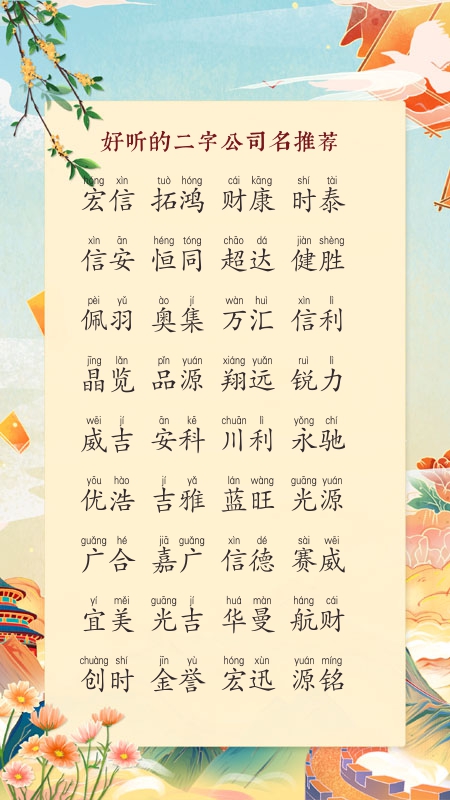 好听的二字公司名推荐
hóng xìn tuò hóng cái kāng shí tài
宏信 拓鸿 财康 时泰
xìn ān héng tóng chāo dá jiàn shèng
信安 恒同 超达 健胜
pèi yǔ ào jí wàn huì xìn lì
佩羽 奥集 万汇 信利
jīng lǎn pǐn yuán xiáng yuǎn ruì lì
晶览 品源 翔远 锐力
wēi jí ān kē chuān lì yǒng chí
威吉 安科 川利 永驰
yōu hào jí yǎ lán wàng guāng yuán
优浩 吉雅 蓝旺 光源
guǎng hé jiā guǎng xìn dé sài wēi
广合 嘉广 信德 赛威
yí měi guāng jí huá màn háng cái
宜美 光吉 华曼 航财
chuàng shí jīn yù hóng xùn yuán míng
创时 金誉 宏迅 源铭